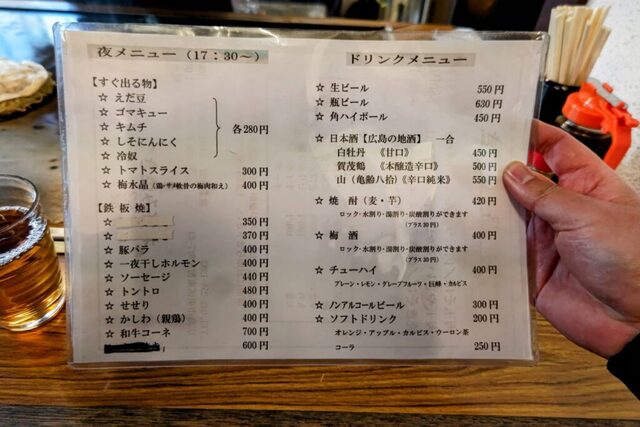 夜メニュー（17：30～）
【すぐ出る物】
☆ えだ豆
☆ ゴマキュー
☆ キムチ
☆ しそにんにく
☆ 冷奴
各280円
☆ トマトスライス 300円
☆ 梅水晶（鶏・サメ軟骨の梅肉和え） 400円
【鉄 板 焼】
☆ 350円
☆ 370円
☆ 豚バラ 400円
☆ 一夜干しホルモン 400円
☆ ソーセージ 440円
☆ トントロ 480円
☆ せせり 400円
☆ かしわ（親鶏） 400円
☆ 和牛コーネ 700円
600円
ドリンクメニュー
☆ 生ビール 550円
☆ 瓶ビール 630円
☆ 角ハイボール 450円
☆ 日本酒【広島の地酒】 一合
白牡丹 《甘口》 450円
賀茂鶴 《本醸造辛口》 500円
山（亀齢八拾）《辛口純米》 550円
☆ 焼 酎（麦・芋） 420円
ロック・水割り・湯割り・炭酸割りができます
（プラス30円）
☆ 梅 酒 400円
ロック・水割り・湯割り・炭酸割りができます
（プラス30円）
☆ チューハイ 400円
プレーン・レモン・グレープフルーツ・巨峰・カルピス
☆ ノンアルコールビール 300円
☆ ソフトドリンク 200円
オレンジ・アップル・カルピス・ウーロン茶
コーラ 250円